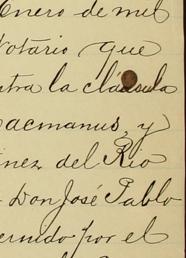 Enero de mil
Notario que
ntra la cláusula
acmanus, y
inez del Rio
Don José Pablo
ernido por el